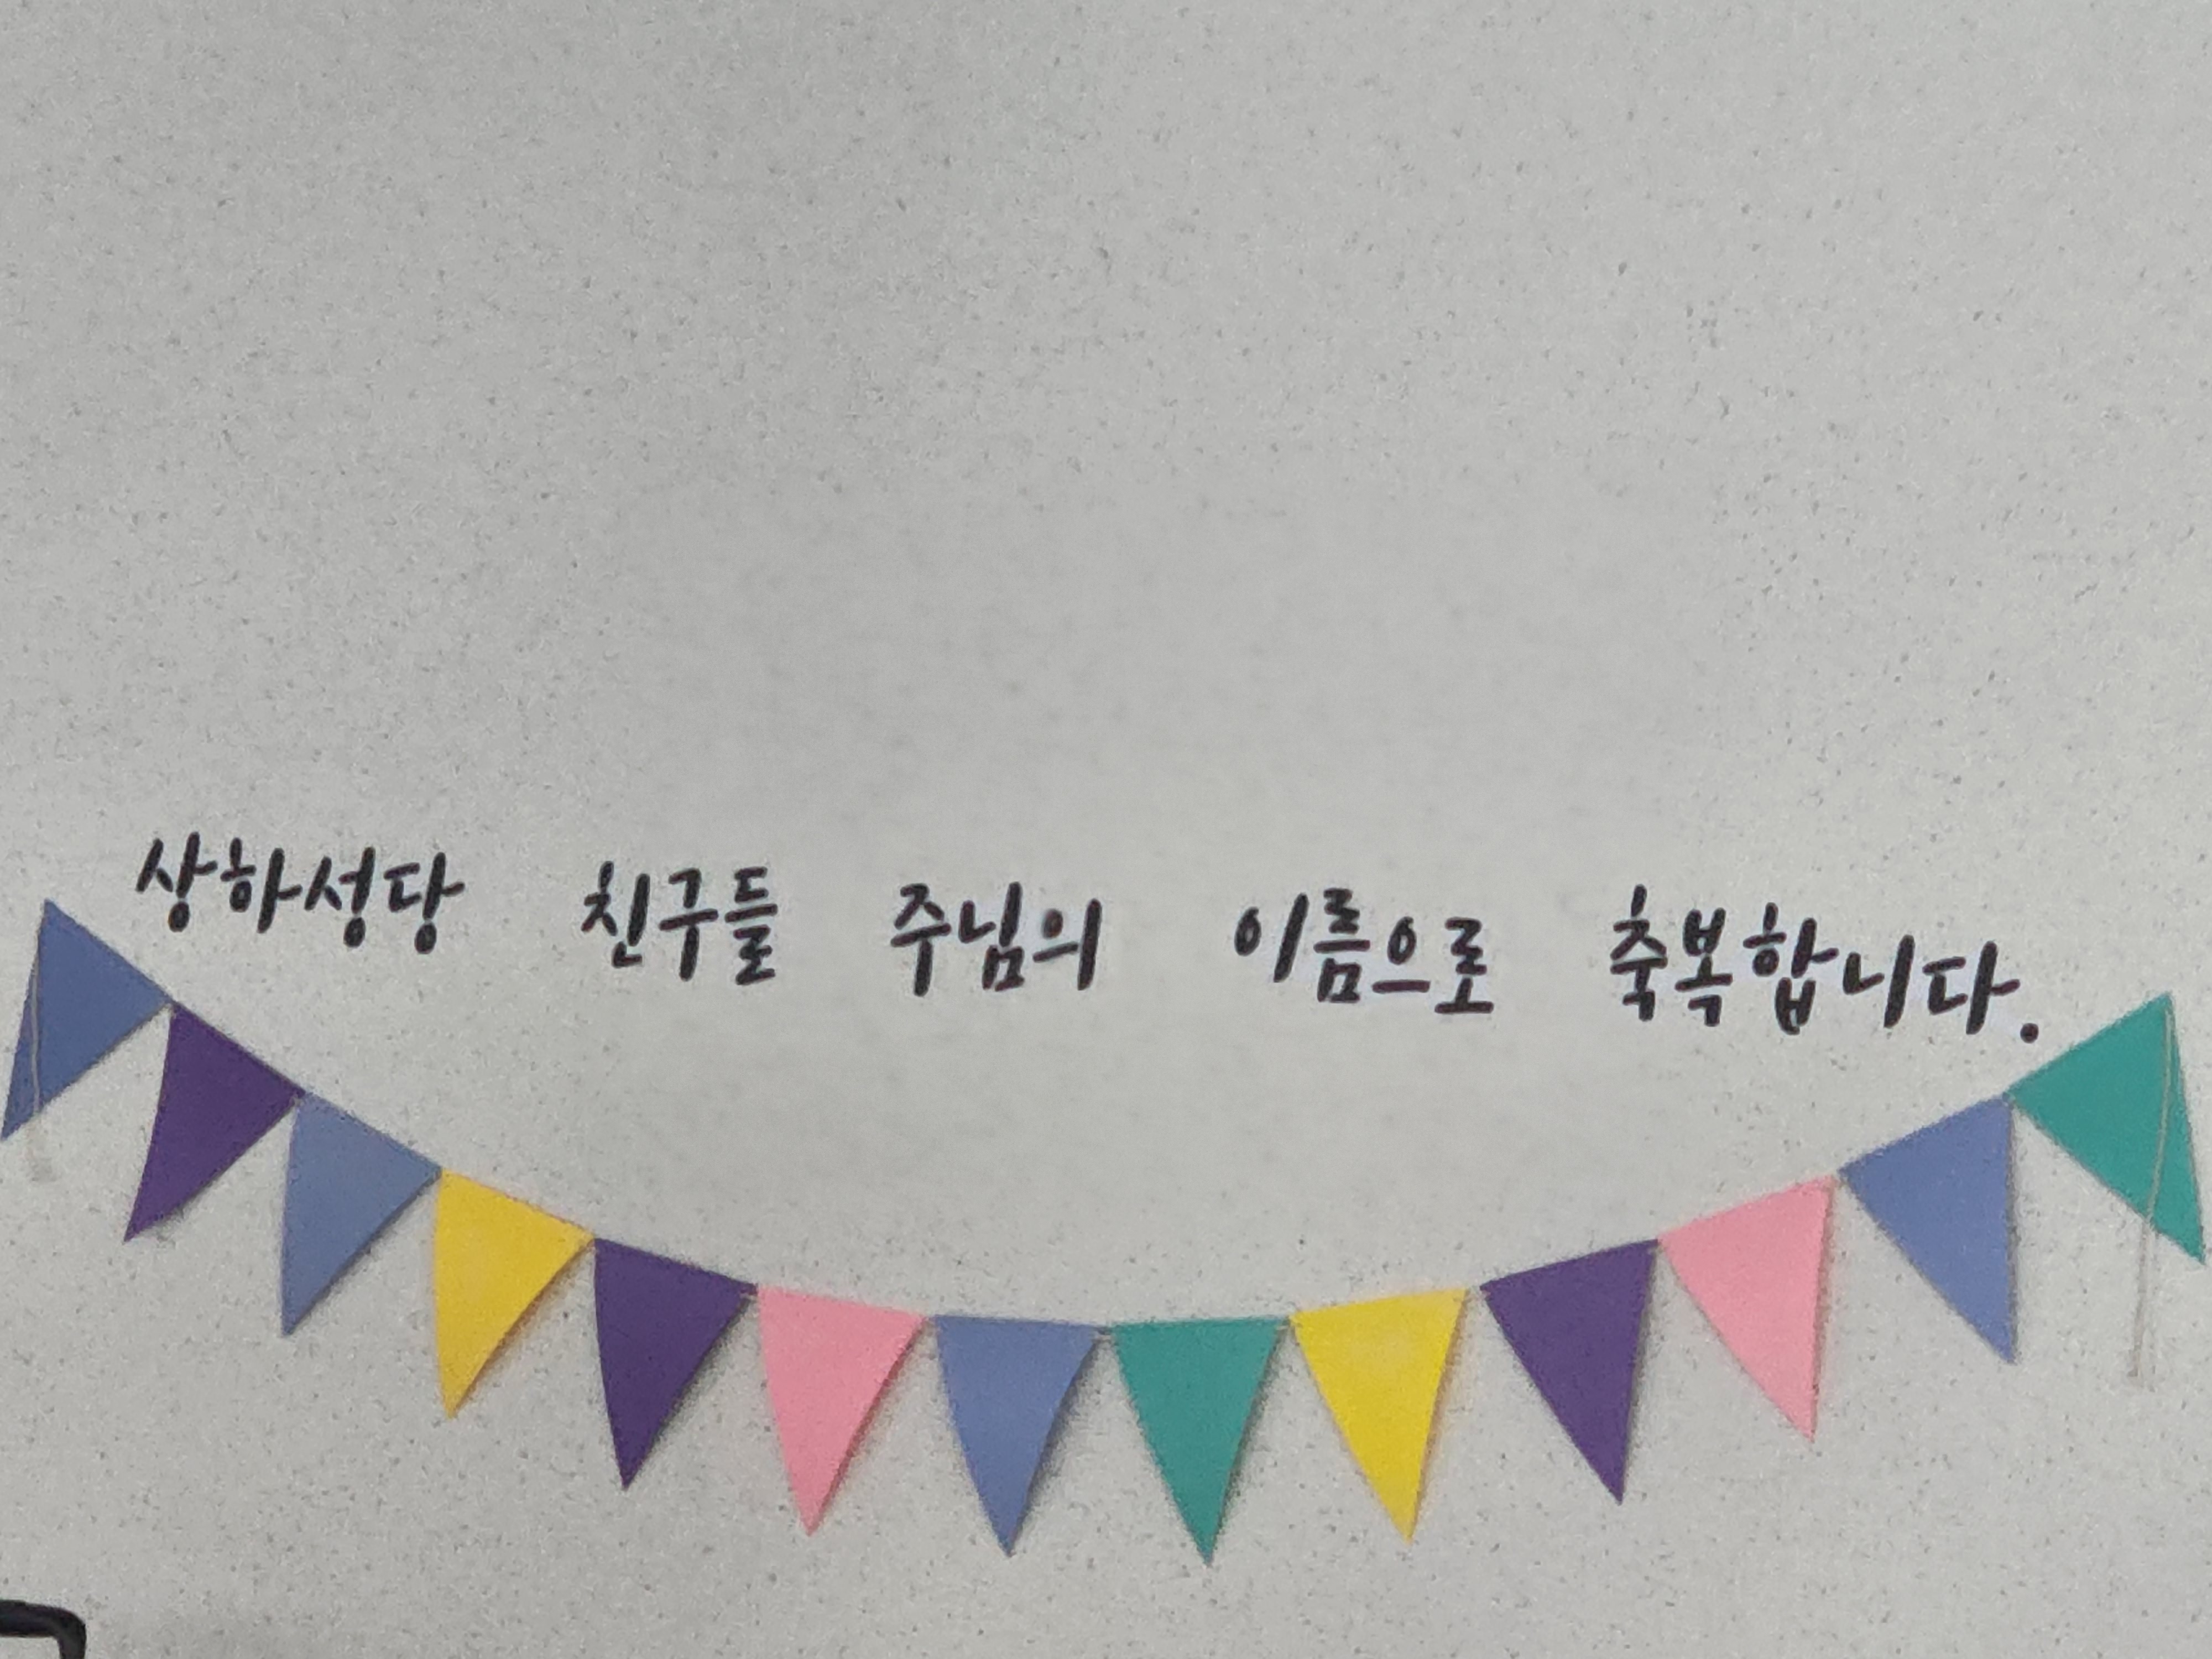 상하성당 친구들 주님의 이름으로 축복합니다.